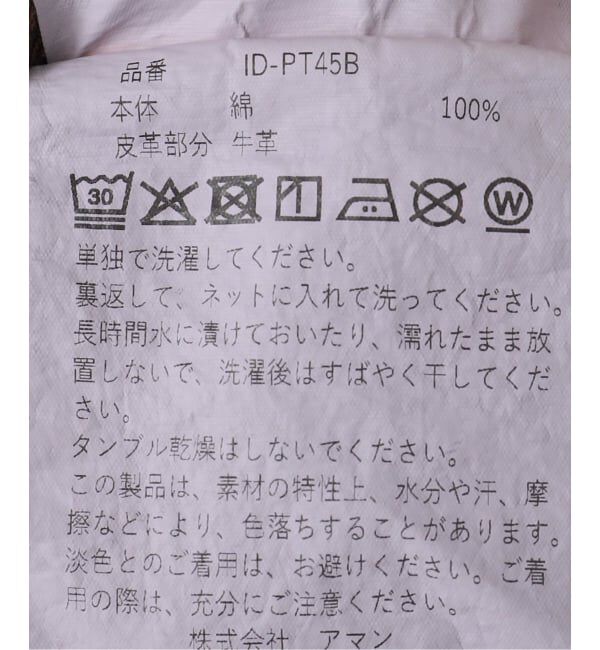 品番 ID-PT45B
本体 綿 100%
皮革部分 牛革
30 W
単独で洗濯してください。
裏返して、ネットに入れて洗ってください。
長時間水に漬けておいたり、濡れたまま放
置しないで、洗濯後はすばやく干してくだ
さい。
タンブル乾燥はしないでください。
この製品は、素材の特性上、水分や汗、摩
擦などにより、色落ちすることがあります。
淡色とのご着用は、お避けください。ご着
用の際は、充分にご注意ください。
株式会社 アマン